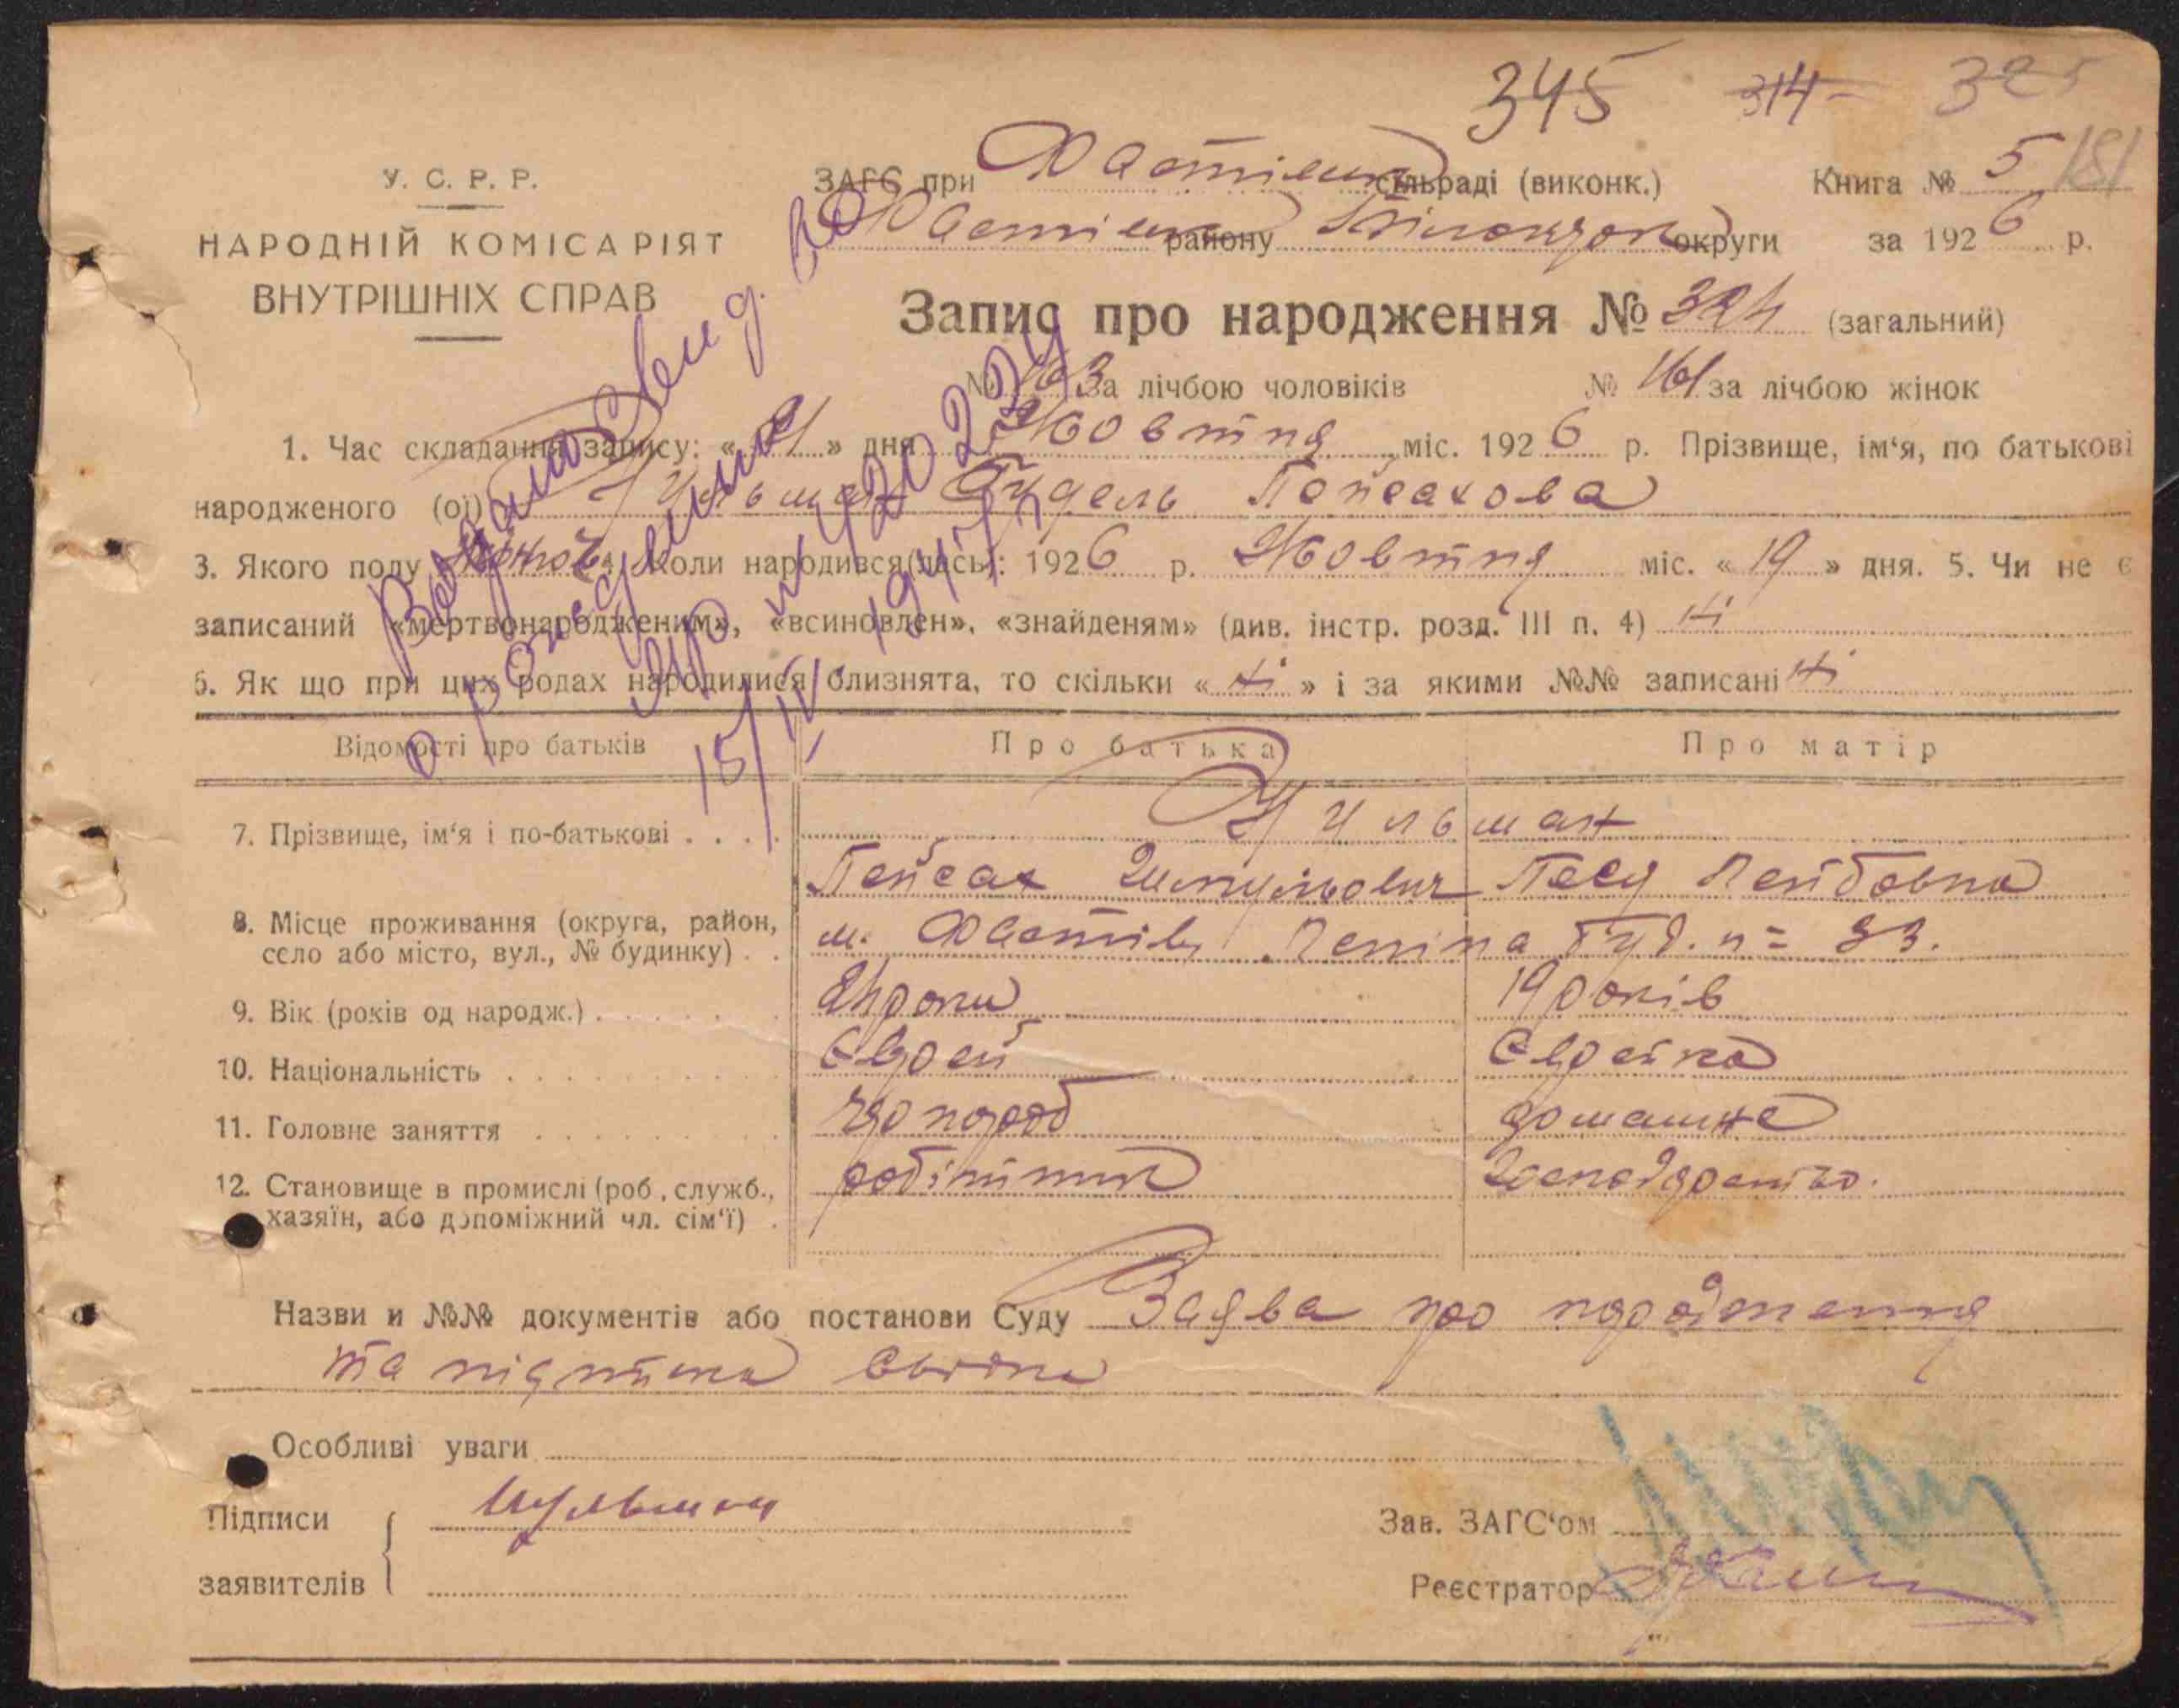 345 314 325
У. С. Р. Р.
НАРОДНІЙ КОМІСАРІЯТ
ВНУТРІШНІХ СПРАВ
ЗАГС при Хвастівськ сільраді (виконк.) Книга № 5 181
району Білоцерк округи за 1926 р.
Запис про народження № 324 (загальний)
№ 163 за лічбою чоловіків № 161 за лічбою жінок
1. Час складання запису: « 21 » дня Жовтня міс. 1926 р. Прізвище, ім'я, по батькові
народженого (ої) Шульман Гудель Пейсахова
3. Якого полу Жіноч. 4. Коли народився(лась): 1926 р. Жовтня міс. « 19 » дня. 5. Чи не є
записаний «мертвонародженим», «всиновлен», «знайденям» (див. інстр. розд. III п. 4) Ні
6. Як що при цих родах народилися близнята, то скільки « Ні » і за якими №№ записані Ні
Выдано свид. во
о рождении
15/IV 1947
Відомості про батьків Про батька Про матір
7. Прізвище, ім'я і по-батькові Шульман
Пейсах Шмульович Песя Лейбовна
8. Місце проживання (округа, район,
село або місто, вул., № будинку) м. Хвастів, Леніна буд. № 33.
9. Вік (років од народж.) 24 роки 19 років
10. Національність Єврей Єврейка
11. Головне заняття чорнороб домашнє
12. Становище в промислі (роб., служб.,
хазяїн, або допоміжний чл. сім'ї) робітник господарство.
Назви и №№ документів або постанови Суду Заява про народження
та підписка свідка
Особливі уваги
Підписи
заявителів Шульман
Зав. ЗАГС'ом
Реєстратор